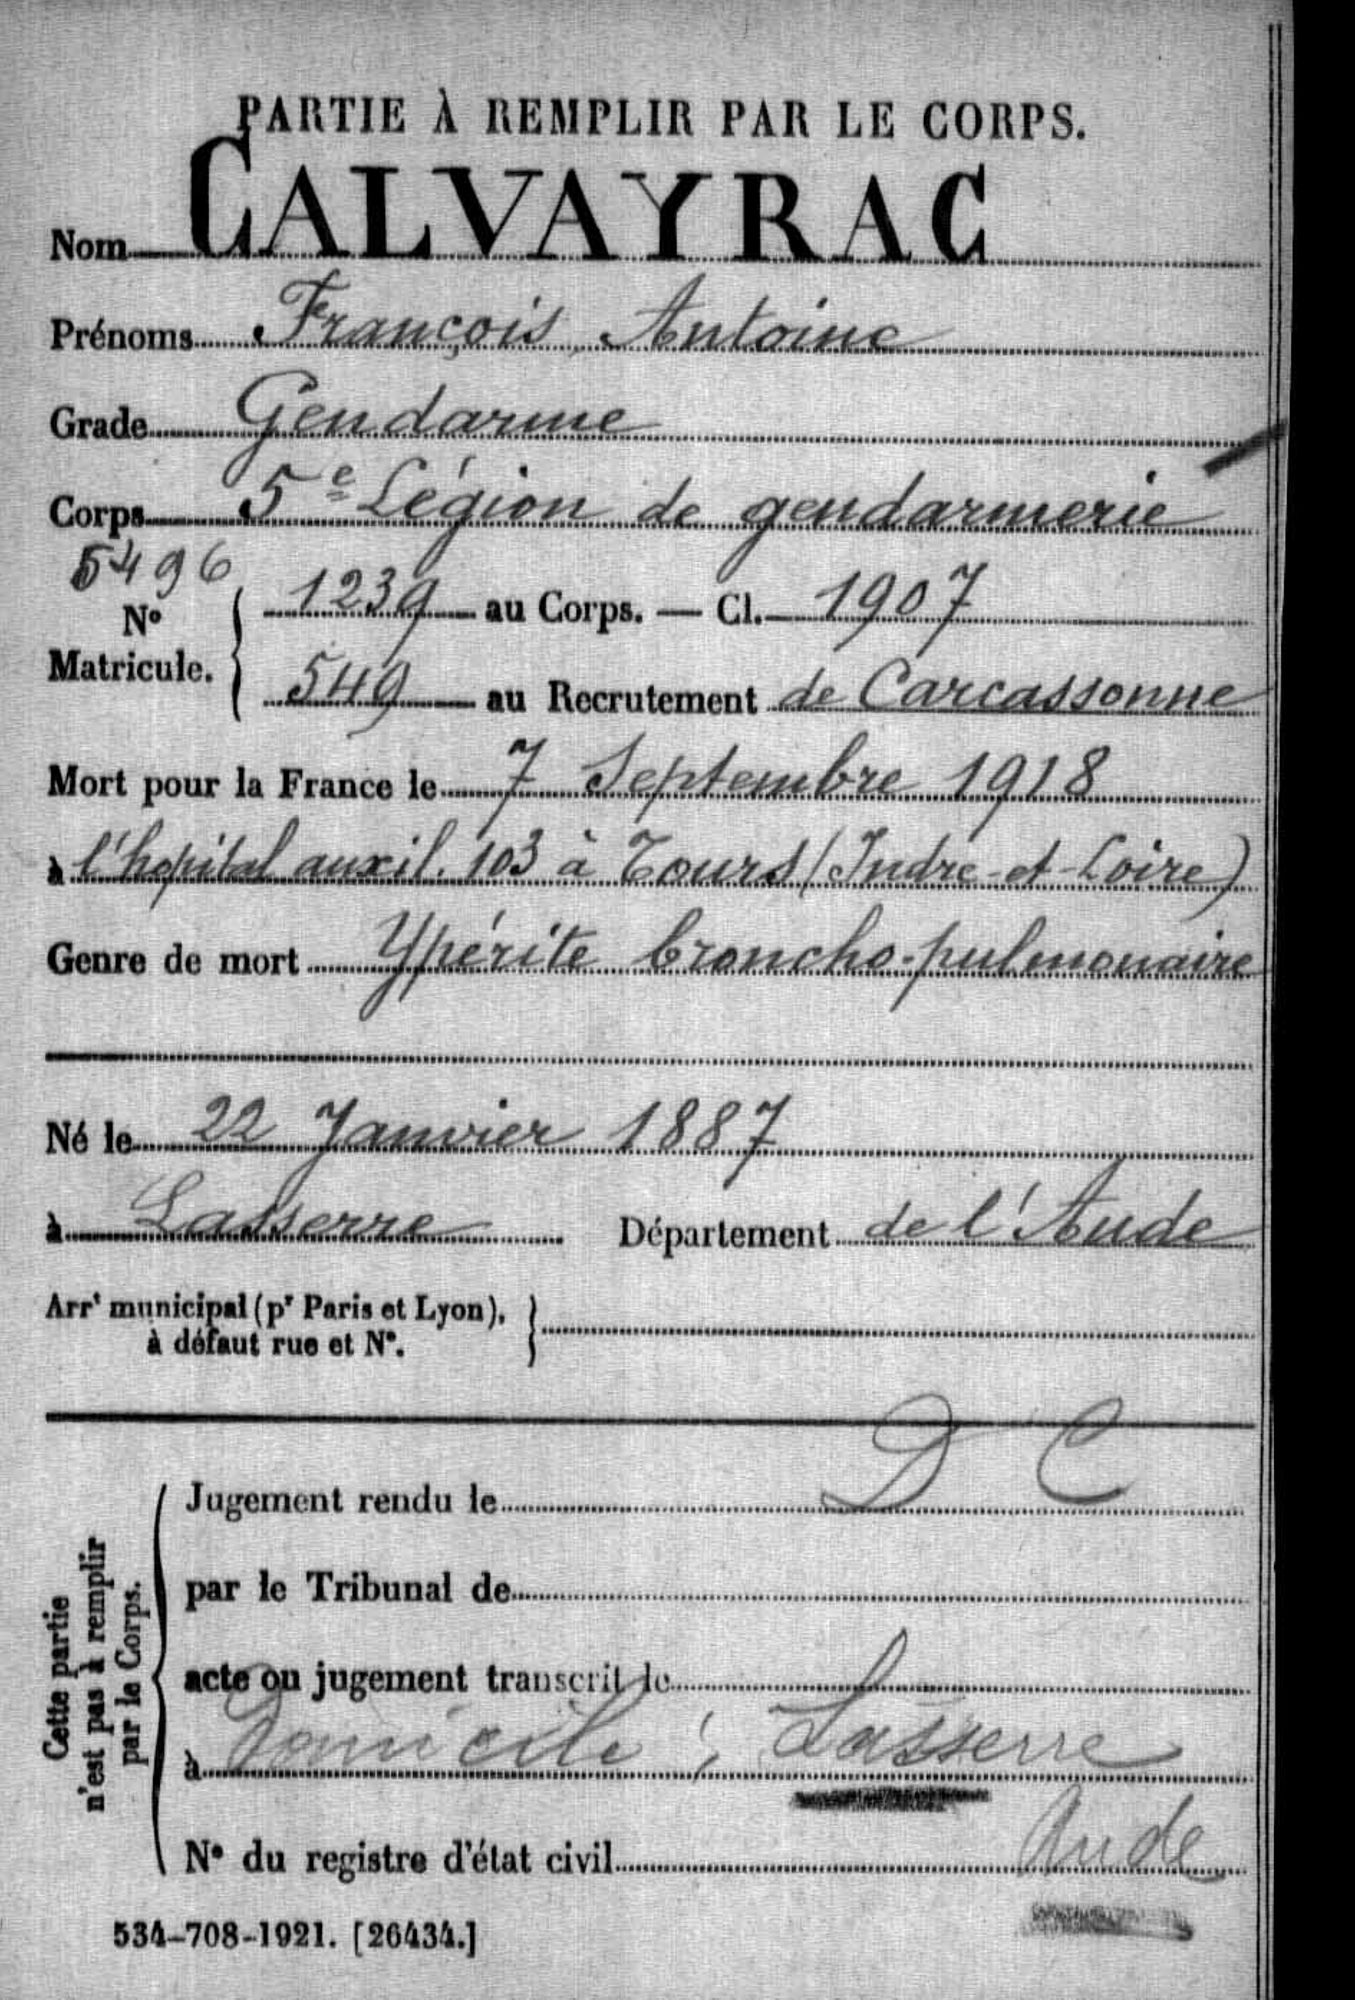 PARTIE À REMPLIR PAR LE CORPS.
Nom CALVAYRAC
Prénoms François, Antoine
Grade Gendarme
Corps 5e Légion de gendarmerie
5496
No Matricule. 1239 au Corps. — Cl. 1907
549 au Recrutement de Carcassonne
Mort pour la France le 7 Septembre 1918
à l'hopital auxil. 103 à Tours (Indre-et-Loire)
Genre de mort Ypérite broncho-pulmonaire
Né le 22 Janvier 1887
à Lasserre Département de l'Aude
Arrt municipal (pr Paris et Lyon),
à défaut rue et No.
D C
Cette partie
n'est pas à remplir
par le Corps.
Jugement rendu le
par le Tribunal de
acte ou jugement transcrit le
à Domicile : Lasserre
No du registre d'état civil Aude
534-708-1921. [26434.]